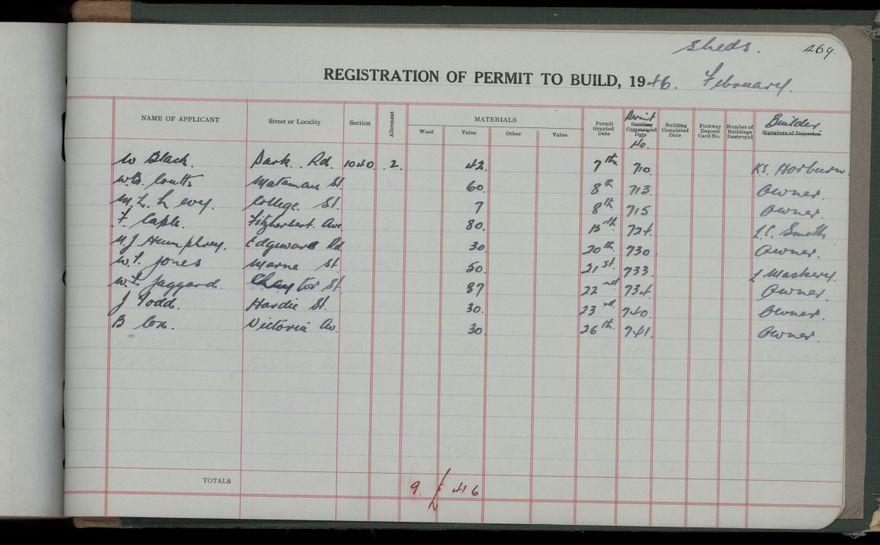 Sheds. 469
REGISTRATION OF PERMIT TO BUILD, 1946. February.
NAME OF APPLICANT Street or Locality Section Allotment MATERIALS Wood Value Other Value Permit Granted Date Permit Building Commenced Date No. Building Completed Date Footway Deposit Card No. Number of Buildings Destroyed Builder Signature of Inspector
W Black. Park Rd. 1040 2. 42. 7th 710. Horburn.
W.B. Coutts Matamau St. 60. 8th 713. Owner.
M. L. Levy. College St. 7 8th 715 Owner.
F. Capls. Fitzherbert Ave. 80. 724. L.C. Smith
M J Humphrey. Edgeware Rd 30 20th 730. Owner.
W. F. Jones Marne St. 50. 21st 733. Mackery
W. F. Jaggard. Chaytor St. 87 22nd 734. Owner.
J Todd. Hardie St. 30. 23rd 740. Owner.
B Cox. Victoria Av. 30. 26th 741. Owner.
TOTALS 9. £ 416